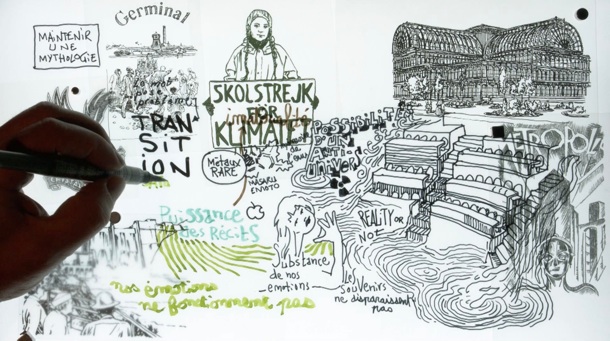 Germinal
MAINTENIR
UNE
MYTHOLOGIE
SKOLSTREJK
FÖR
KLIMATET
TRAN
SIT
iON
MÉTAUX
RARE
MASARU
EMOTO
POSSIBILIT
D'UN
UNIVER
METROPOLIS
Puissance
des RÉCiTS
REALITY OR
NOT
Substance
de nos
émotions
les
souvenirs
ne disparaissent
pas
nos émotions
ne fonctionnent pas